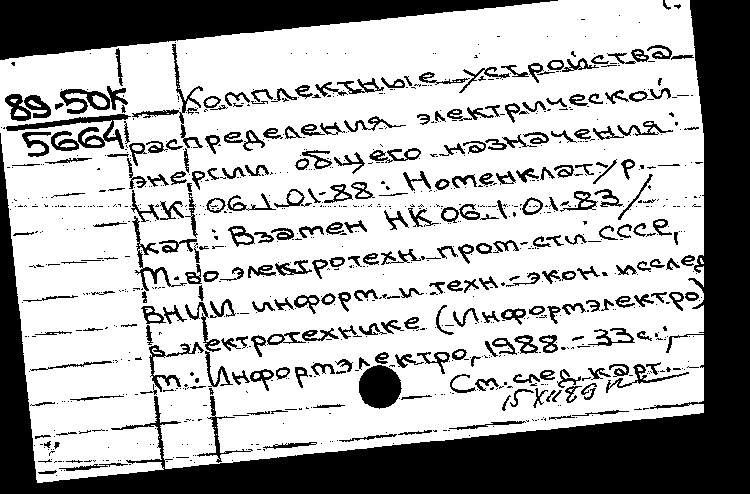 89-50К
5664
Комплектные устройства
распределения электрической
энергии общего назначения:
НК 06.1.01-88: Номенклатур.
кат.: Взамен НК 06.1.01-83/
М-во электротехн. пром-сти СССР,
ВНИИ информ. и техн.-экон. исслед
в электротехнике (Информэлектро)
м.: Информэлектро, 1988.- 33с.;
См. след. карт.
15 XII 89